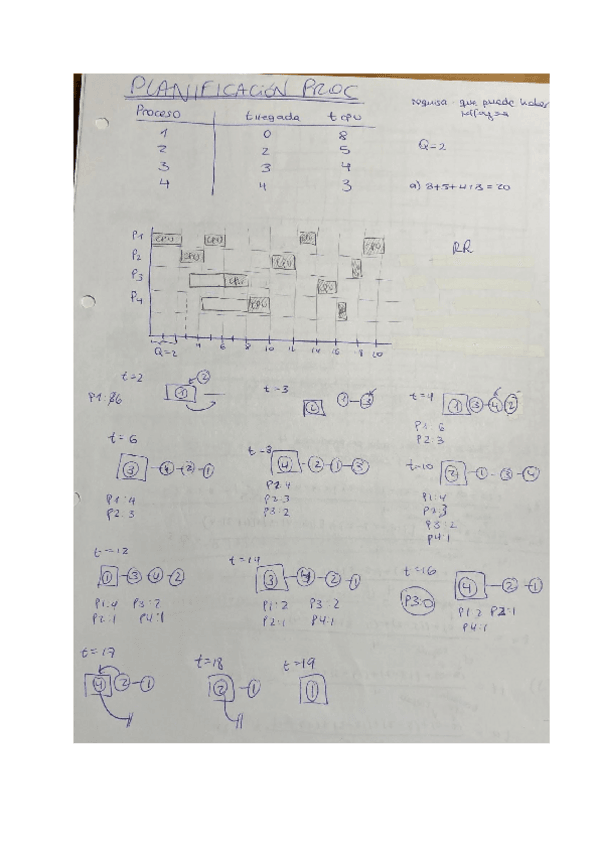 PLANIFICACIÓN PROC
que puede haber
Proceso t llegada t cpu
1 0 8
2 2 5
3 3 4
4 4 3
Q=2
a) 8+5+4+3=20
RR
P1 CPU CPU CPU CPU
P2 CPU CPU
P3 CPU CPU
P4 CPU
4 6 8 10 12 14 16 18 20
Q=2
t=2
P1: 86
1 2
t=3
2 1 3
t=4
1 3 4 2
P1: 6
P2: 3
t=6
3 4 2 1
P1: 4
P2: 3
t=8
4 2 1 3
P1: 4
P2: 3
P3: 2
t=10
2 1 3 4
P1: 4
P2: 3
P3: 2
P4: 1
t=12
1 3 4 2
P1: 4 P3: 2
P2: 1 P4: 1
t=14
3 4 2 1
P1: 2 P3: 2
P2: 1 P4: 1
t=16
P3: 0
4 2 1
P1: 2 P2: 1
P4: 1
t=17
4 2 1
t=18
2 1
t=19
1